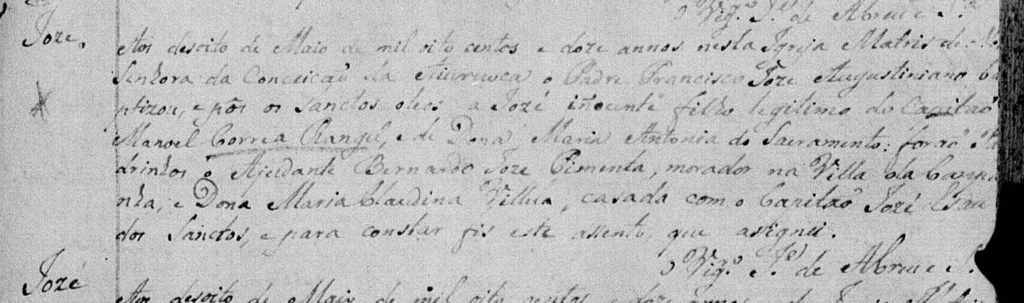 o Vig.º J.e de Abreu e S.a
Joze. Aos desoito de Maio de mil oito centos e doze annos nesta Igreja Matris de N.
Senhora da Conceiçaõ da Aiuruoca o Padre Francisco Joze Augustiniano ba
ptizou, e pôs os Sanctos oleos a Jozé inocente filho legitimo do Capitaõ
Manoel Correa Rangel, e de Dona Maria Antonia do Sacramento: foraõ Pa
drinhos o Ajudante Bernardo Joze Pimenta, morador na Villa da Campa
nha, e Dona Maria Claudina Villua, casada com o Capitaõ Jozé Esau
dos Sanctos, e para constar fis este assento, que asignei.
o Vig.º J.e de Abreu e S.
Jozé Aos desoito de Maio de mil oito centos e doze annos